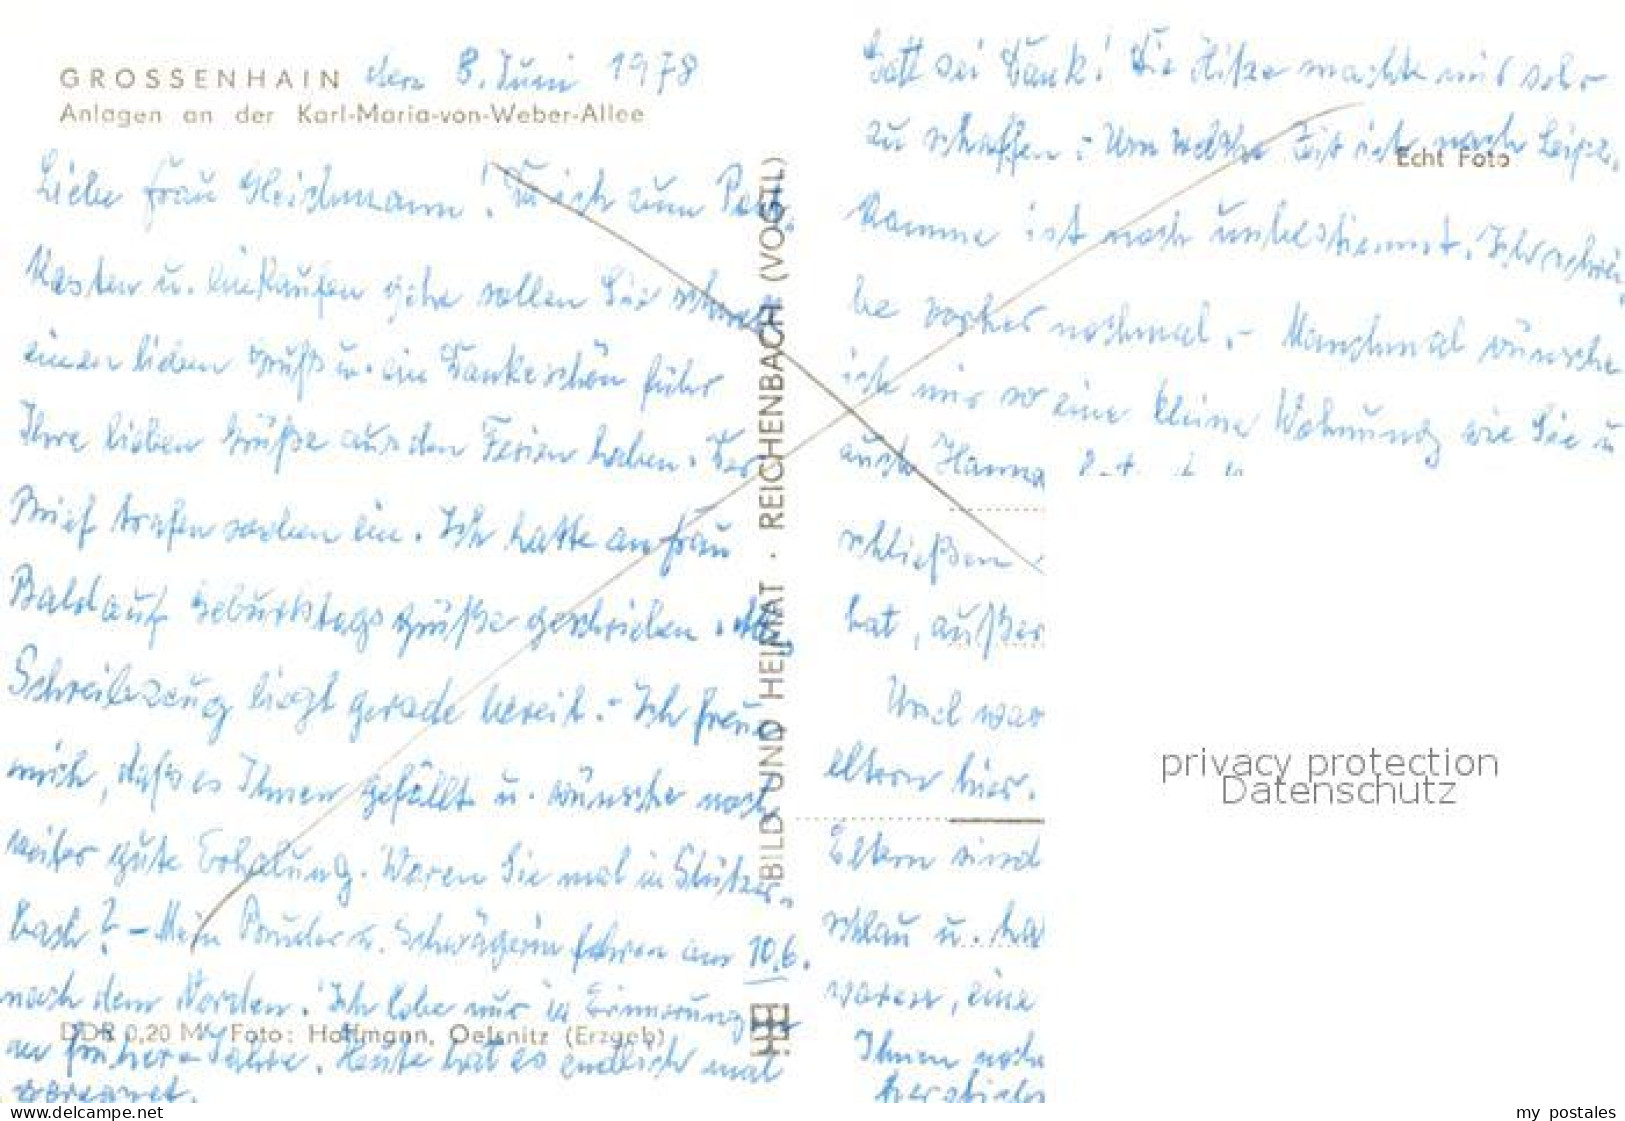 GROSSENHAIN den 8. Juni 1978
Anlagen an der Karl-Maria-von-Weber-Allee
Liebe Frau Gleichmann! Da ich zum Post-
kasten u. einkaufen gehe sollen Sie schnell
einen lieben Gruß u. ein Dankeschön für
Ihre lieben Grüße aus den Ferien haben. Der
Brief trafen soeben ein. Ich hatte an Frau
Baldauf Geburtstagsgrüße geschrieben.
Schreibzeug liegt gerade bereit.- Ich freue
mich, daß es Ihnen gefällt u. wünsche noch
weiter gute Erholung. Waren Sie mal in Stützer-
bach? - Mein Bruder u. Schwägerin fahren am 10.6.
nach dem Norden. Ich lebe nur in Erinnerung
an frühere Jahre. Heute hat es endlich mal
geregnet.
DDR 0,20 M Foto: Hoffmann, Oelsnitz (Erzgeb)
BILD UND HEIMAT · REICHENBACH (VOGTL)
Gott sei Dank! Die Hitze machte mir sehr
zu schaffen.- Um welche Zeit ich nach Leipz.
komme ist noch unbestimmt. Ich schrei-
be vorher nochmal.- Manchmal wünsche
ich mir so eine kleine Wohnung wie Sie u
auch Hanna
schließen
hat, außer
Und war
eltern hier.
Eltern sind
schlau u. ha
waren, eine
Ihnen noch
herzliche
Echt Foto
privacy protection
Datenschutz
www.delcampe.net
my_postales